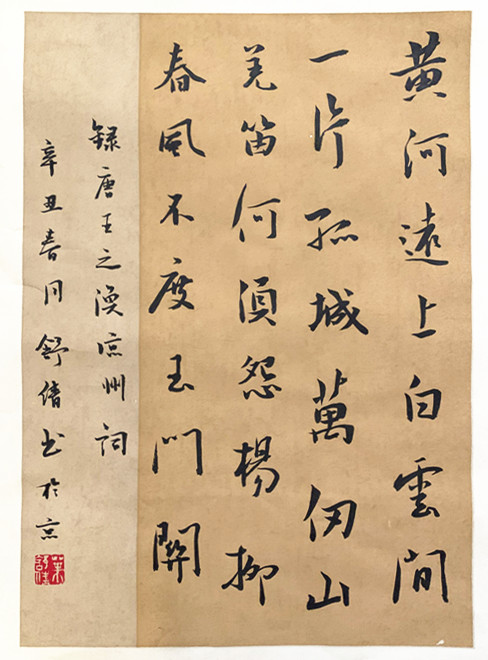 黄河遠上白雲間
一片孤城萬仞山
羌笛何須怨楊柳
春風不度玉門關
録唐王之渙涼州詞
辛丑春月舒倩书於京